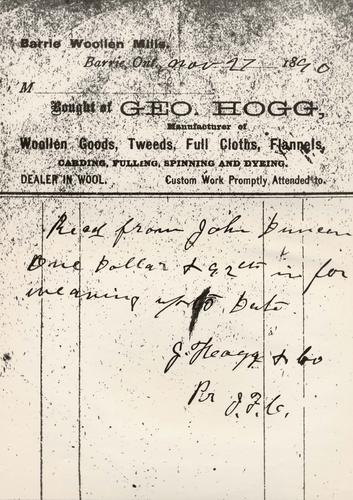 Barrie Woollen Mills.
Barrie, Ont., Nov 27 1890
M
Bought of GEO. HOGG,
Manufacturer of
Woollen Goods, Tweeds, Full Cloths, Flannels,
CARDING, FULLING, SPINNING AND DYEING.
DEALER IN WOOL. Custom Work Promptly Attended to.
Recd from John Duncan
One Dollar & 92cts in for
weaving up to Date
G. Hogg & Co
Per J. F. C.